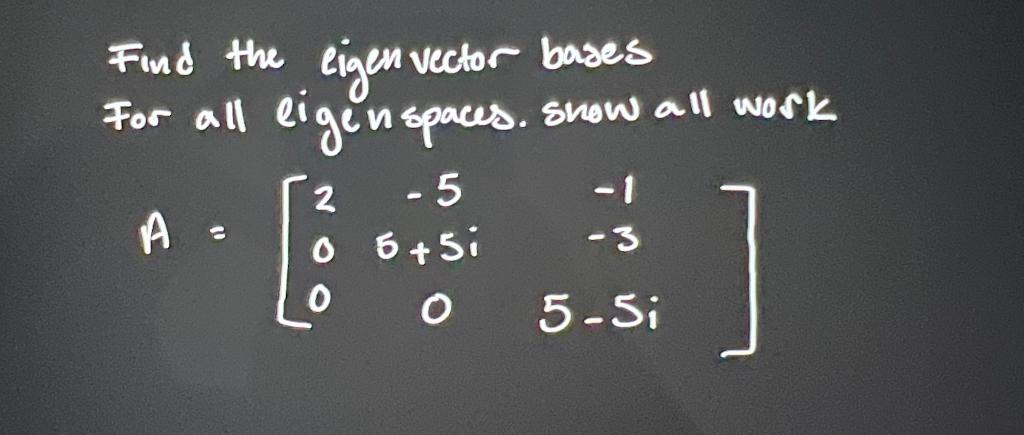 Find the eigenvector bases
For all eigenspaces. show all work
A = [ 2 -5 -1
0 5+5i -3
0 0 5-5i ]